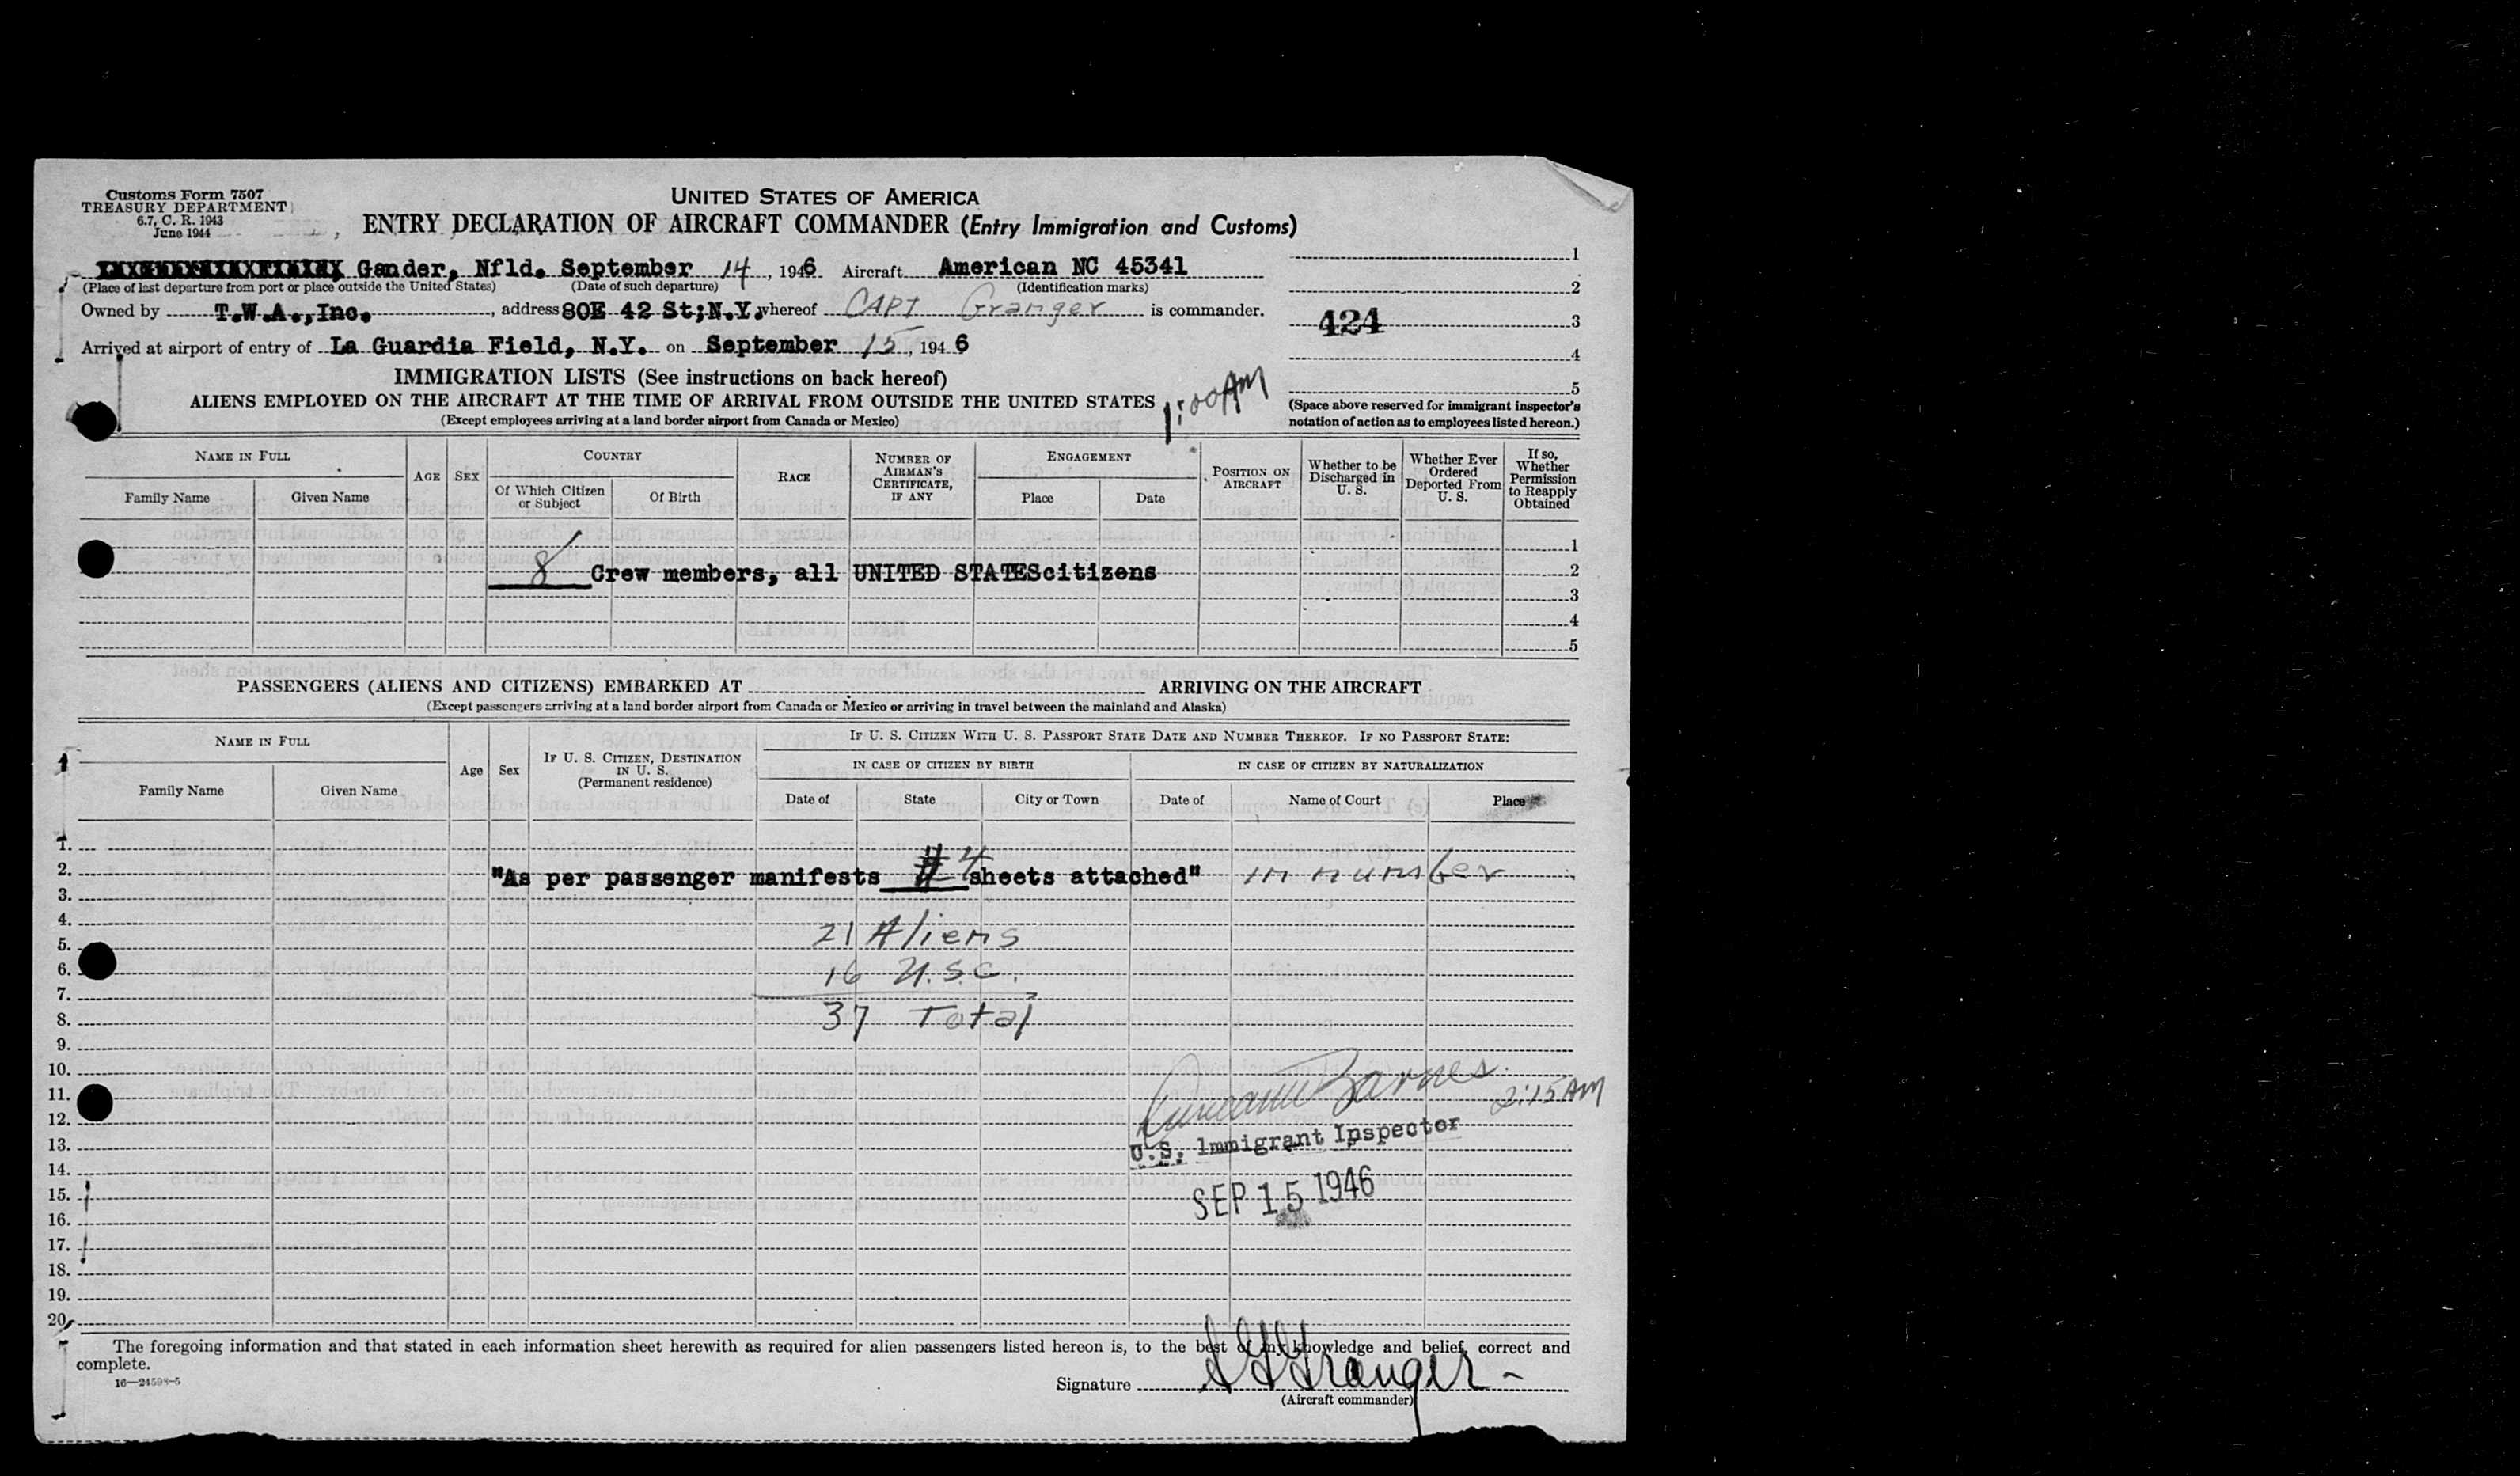 Customs Form 7507
TREASURY DEPARTMENT
6.7, C. R. 1943
June 1944
UNITED STATES OF AMERICA
ENTRY DECLARATION OF AIRCRAFT COMMANDER (Entry Immigration and Customs)
Gander, Nfld. September 14, 1946 Aircraft American NC 45341
(Place of last departure from port or place outside the United States) (Date of such departure) (Identification marks)
Owned by T.W.A., Inc., address 80E 42 St; N.Y. whereof CAPT Granger is commander.
Arrived at airport of entry of La Guardia Field, N.Y. on September 15, 1946
1
2
424 3
4
5
(Space above reserved for immigrant inspector's notation of action as to employees listed hereon.)
IMMIGRATION LISTS (See instructions on back hereof)
ALIENS EMPLOYED ON THE AIRCRAFT AT THE TIME OF ARRIVAL FROM OUTSIDE THE UNITED STATES
1:00 AM
(Except employees arriving at a land border airport from Canada or Mexico)
NAME IN FULL
Family Name Given Name
AGE SEX
COUNTRY
Of Which Citizen or Subject Of Birth
RACE
NUMBER OF AIRMAN'S CERTIFICATE, IF ANY
ENGAGEMENT
Place Date
POSITION ON AIRCRAFT
Whether to be Discharged in U. S.
Whether Ever Ordered Deported From U. S.
If so, Whether Permission to Reapply Obtained
1
8 Crew members, all UNITED STATES citizens 2
3
4
5
PASSENGERS (ALIENS AND CITIZENS) EMBARKED AT ARRIVING ON THE AIRCRAFT
(Except passengers arriving at a land border airport from Canada or Mexico or arriving in travel between the mainland and Alaska)
NAME IN FULL
Family Name Given Name
Age Sex
IF U. S. CITIZEN, DESTINATION IN U. S.
(Permanent residence)
IF U. S. CITIZEN WITH U. S. PASSPORT STATE DATE AND NUMBER THEREOF. IF NO PASSPORT STATE:
IN CASE OF CITIZEN BY BIRTH IN CASE OF CITIZEN BY NATURALIZATION
Date of State City or Town Date of Name of Court Place
1.
2. "As per passenger manifests # 4 sheets attached" in number
3.
4.
5. 21 Aliens
6. 16 U.S.C.
7.
8. 37 Total
9.
10.
11. Barnes 2:15 AM
12.
13. U.S. Immigrant Inspector
14.
15. SEP 15 1946
16.
17.
18.
19.
20.
The foregoing information and that stated in each information sheet herewith as required for alien passengers listed hereon is, to the best of my knowledge and belief, correct and
complete.
16—24598-5
Signature Granger
(Aircraft commander)